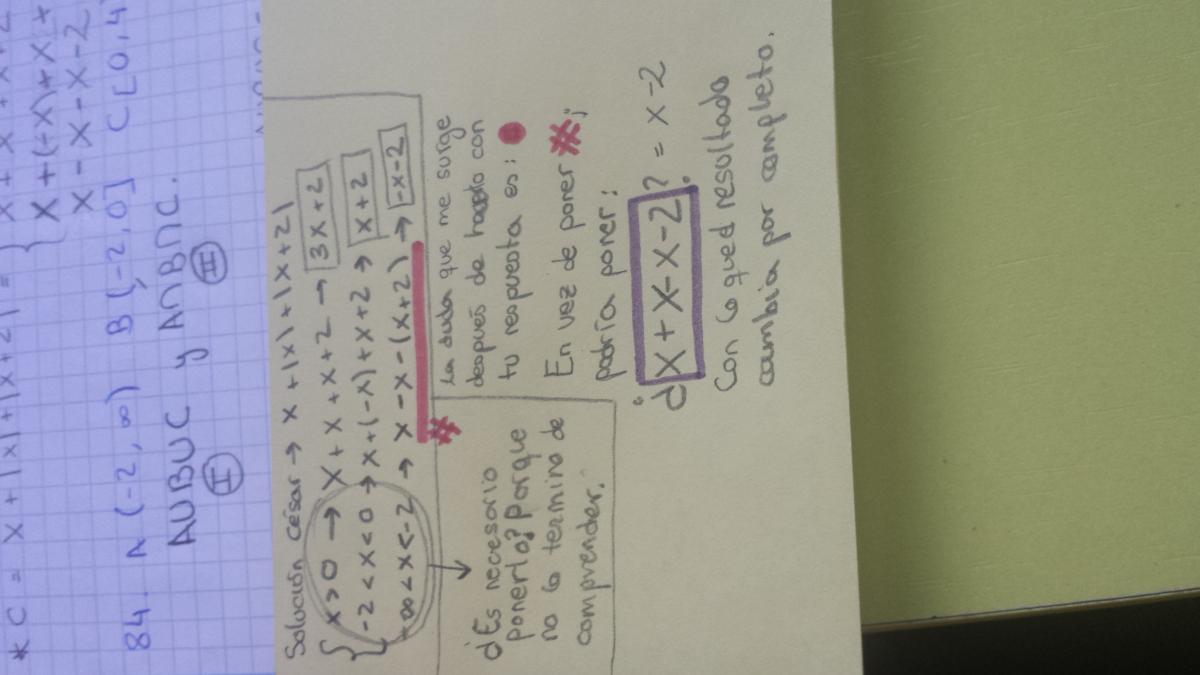 * C = x + |x| + |x+2| = { x + x + x + 2
x + (-x) + x +
x - x - x - 2
84. A (-2, ∞) B [-2, 0] C [0, 4)
AUBUC y A∩B∩C.
I II
Solución César → x + |x| + |x+2|
{ x > 0 → x + x + x + 2 → 3x + 2
-2 < x < 0 → x + (-x) + x + 2 → x + 2
+∞ < x < -2 → x - x - (x+2) → -x - 2
#
¿Es necesario
ponerlo? Porque
no lo termino de
comprender.
La duda que me surge
después de hacerlo con
tu respuesta es:
En vez de poner #;
podría poner:
¿x + x - x - 2? = x - 2
Con lo qued resultado
cambia por completo.